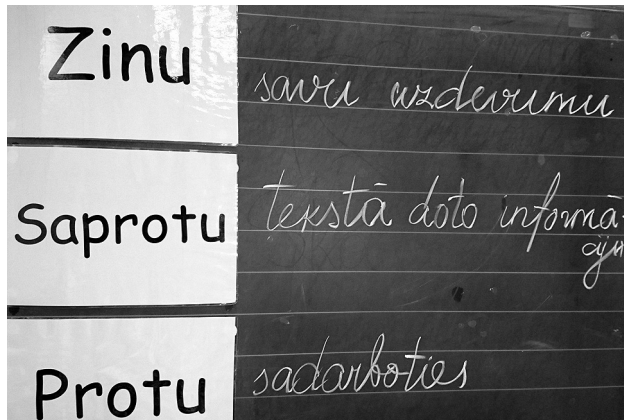 Zinu
savu uzdevumu
Saprotu
tekstā doto informā-
ciju
Protu
sadarboties